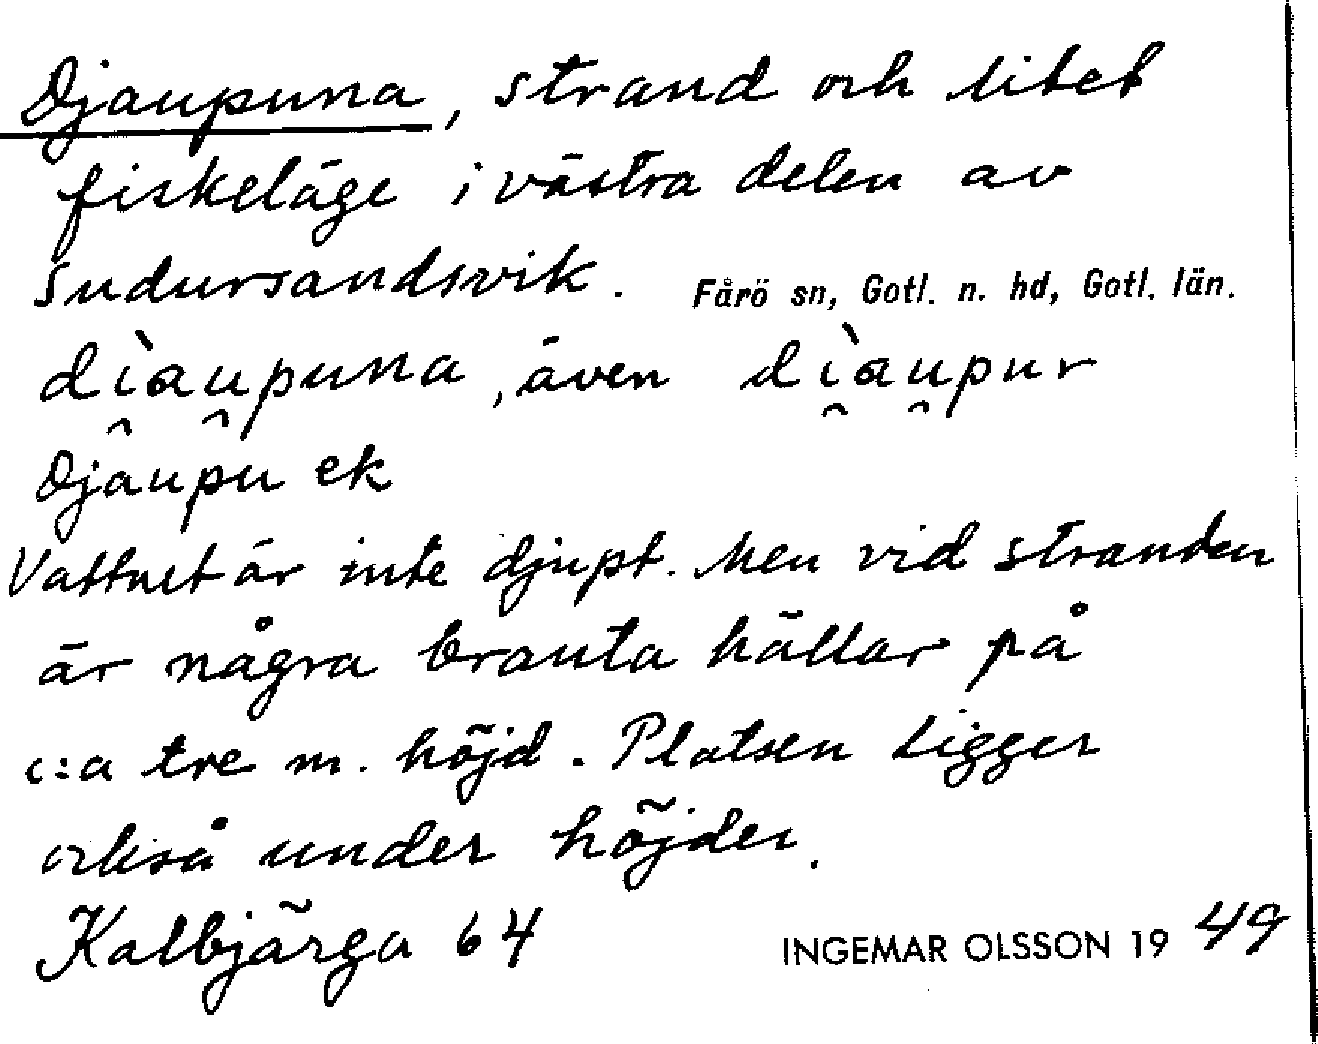 Djaupuna, strand och litet
fiskeläge i västra delen av
Sudursandsvik. Fårö sn, Gotl. n. hd, Gotl. län.
di̯àu̯puna, även di̯àu̯pur
Djaupu ek
Vattnet är inte djupt. Men vid stranden
är några branta hällar på
c:a tre m. höjd. Platsen ligger
också under höjder.
Kalbjärga 64 INGEMAR OLSSON 1949